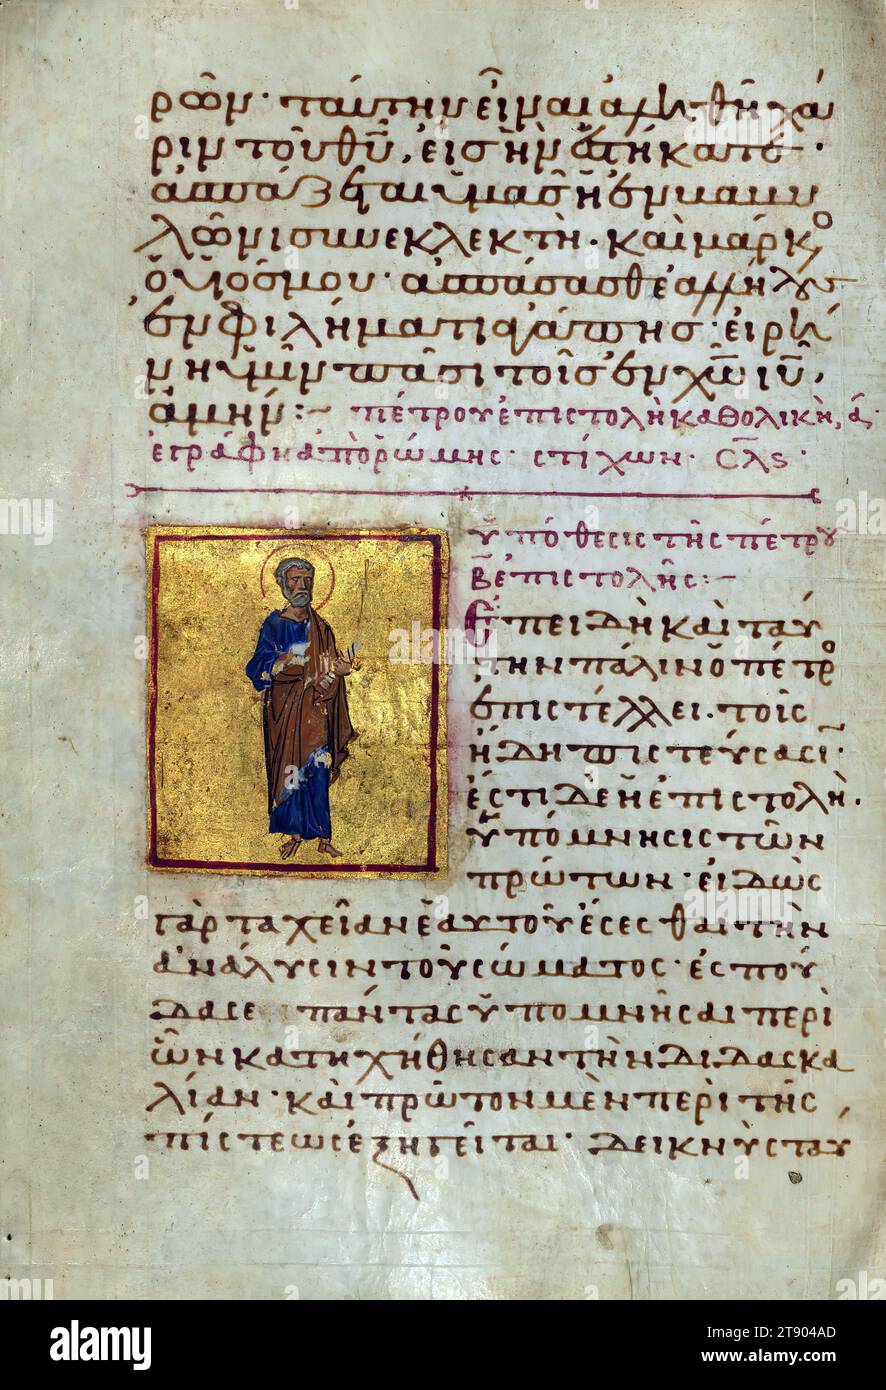 ρῶν· ταύτην εἶναι ἀληθῆ χά
ριν τοῦ θῦ, εἰς ἣν ἑστήκατε·
ἀσπάζεται ὑμᾶς ἡ ἐν βαβυ
λῶνι συνεκλεκτὴ· καὶ μάρκος
ὁ υἱός μου· ἀσπάσασθε ἀλλήλους
ἐν φιλήματι ἀγάπης· εἰρή
νη ὑμῖν πᾶσι τοῖς ἐν χῶ ιῦ,
ἀμήν:~
πέτρου ἐπιστολὴ καθολικὴ, α·
ἐγράφη ἀπὸ ῥώμης· στίχων· σλς·
ὑπόθεσις τῆς πέτρου
β ἐπιστολῆς:~
Ἐπειδὴ καὶ ταύ
την πάλιν ὁ πέτρος
ἐπιστέλλει· τοῖς
ἤδη πιστεύσασι·
ἔστι δὲ ἡ ἐπιστολὴ·
ὑπόμνησις τῶν
πρώτων· εἰδὼς
γὰρ ταχεῖαν ἑαυτοῦ ἔσεσθαι τὴν
ἀνάλυσιν τοῦ σώματος· ἐσπού
δασε πάντας ὑπομνῆσαι περὶ
ὧν κατηχήθησαν τὴν διδασκα
λίαν· καὶ πρῶτον μὲν περὶ τῆς
πίστεως ἐξηγεῖται· δεικνὺς ταύ
alamy
Image ID: 2T904AD
www.alamy.com